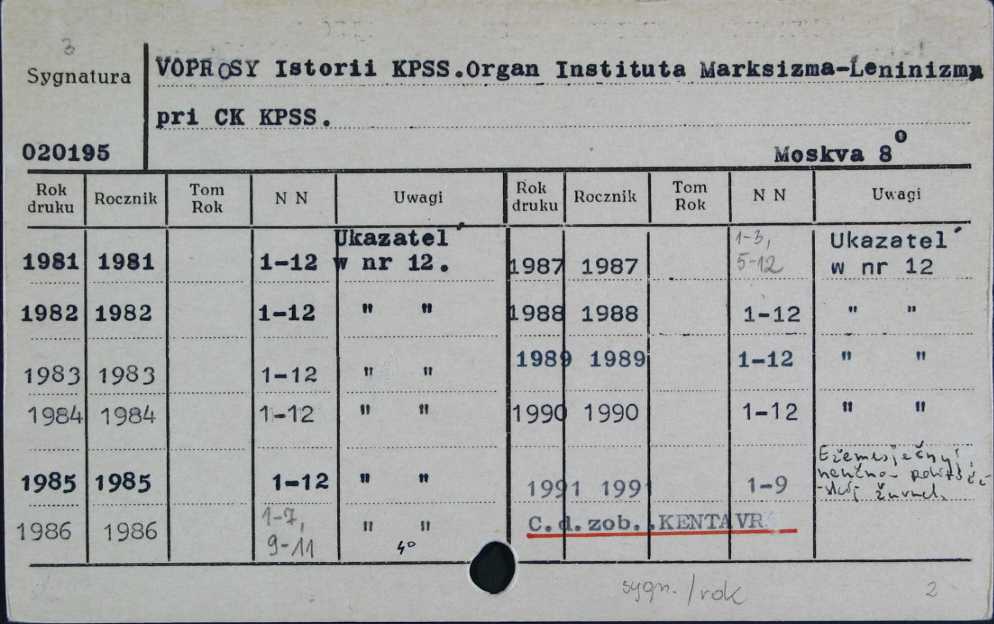 3
Sygnatura
VOPROSY Istorii KPSS.Organ Instituta Marksizma-Leninizma
pri CK KPSS.
020195
Moskva 8°
Rok druku Rocznik Tom Rok N N Uwagi Rok druku Rocznik Tom Rok N N Uwagi
Ukazatel´ 1-3, Ukazatel´
1981 1981 1-12 w nr 12. 1987 1987 5-12 w nr 12
1982 1982 1-12 " " 1988 1988 1-12 " "
1983 1983 1-12 " " 1989 1989 1-12 " "
1984 1984 1-12 " " 1990 1990 1-12 " "
1985 1985 1-12 " " 1991 1991 1-9 Ežemesječnyj
žurnal.
1986 1986 1-7, 9-11 " " 4° C.d.zob. KENTAVR
sygn./rok
2